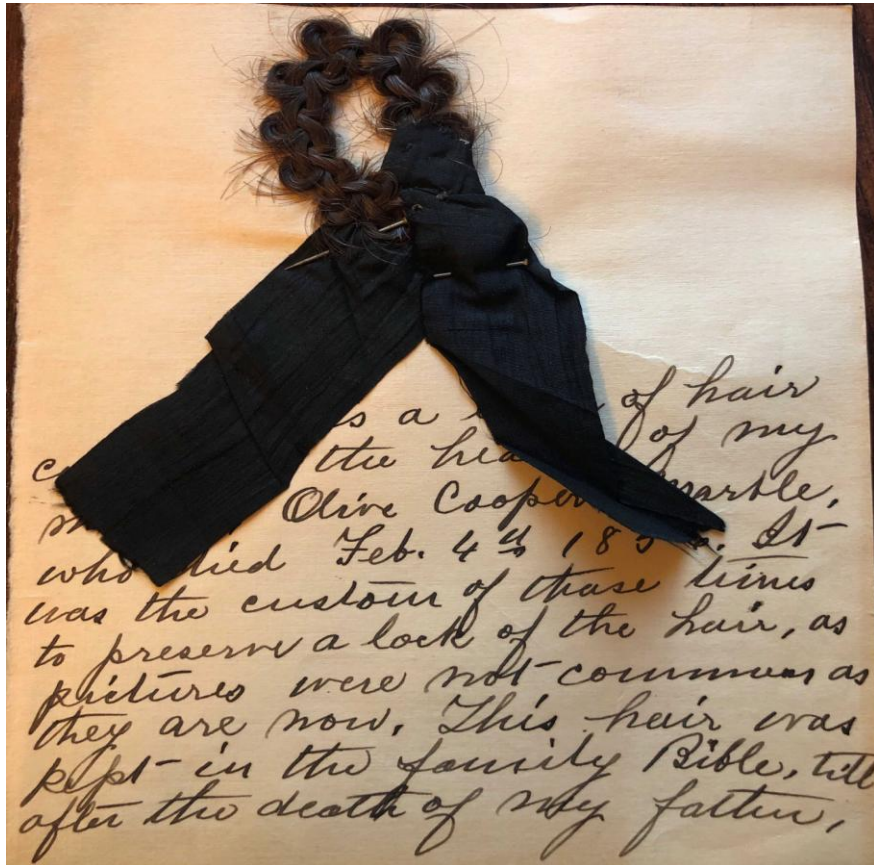 s a of hair
the of my
Olive Cooper Marble,
who died Feb. 4th 185 . It
was the custom of those times
to preserve a lock of the hair, as
pictures were not common as
they are now. This hair was
kept in the family Bible, till
after the death of my father,